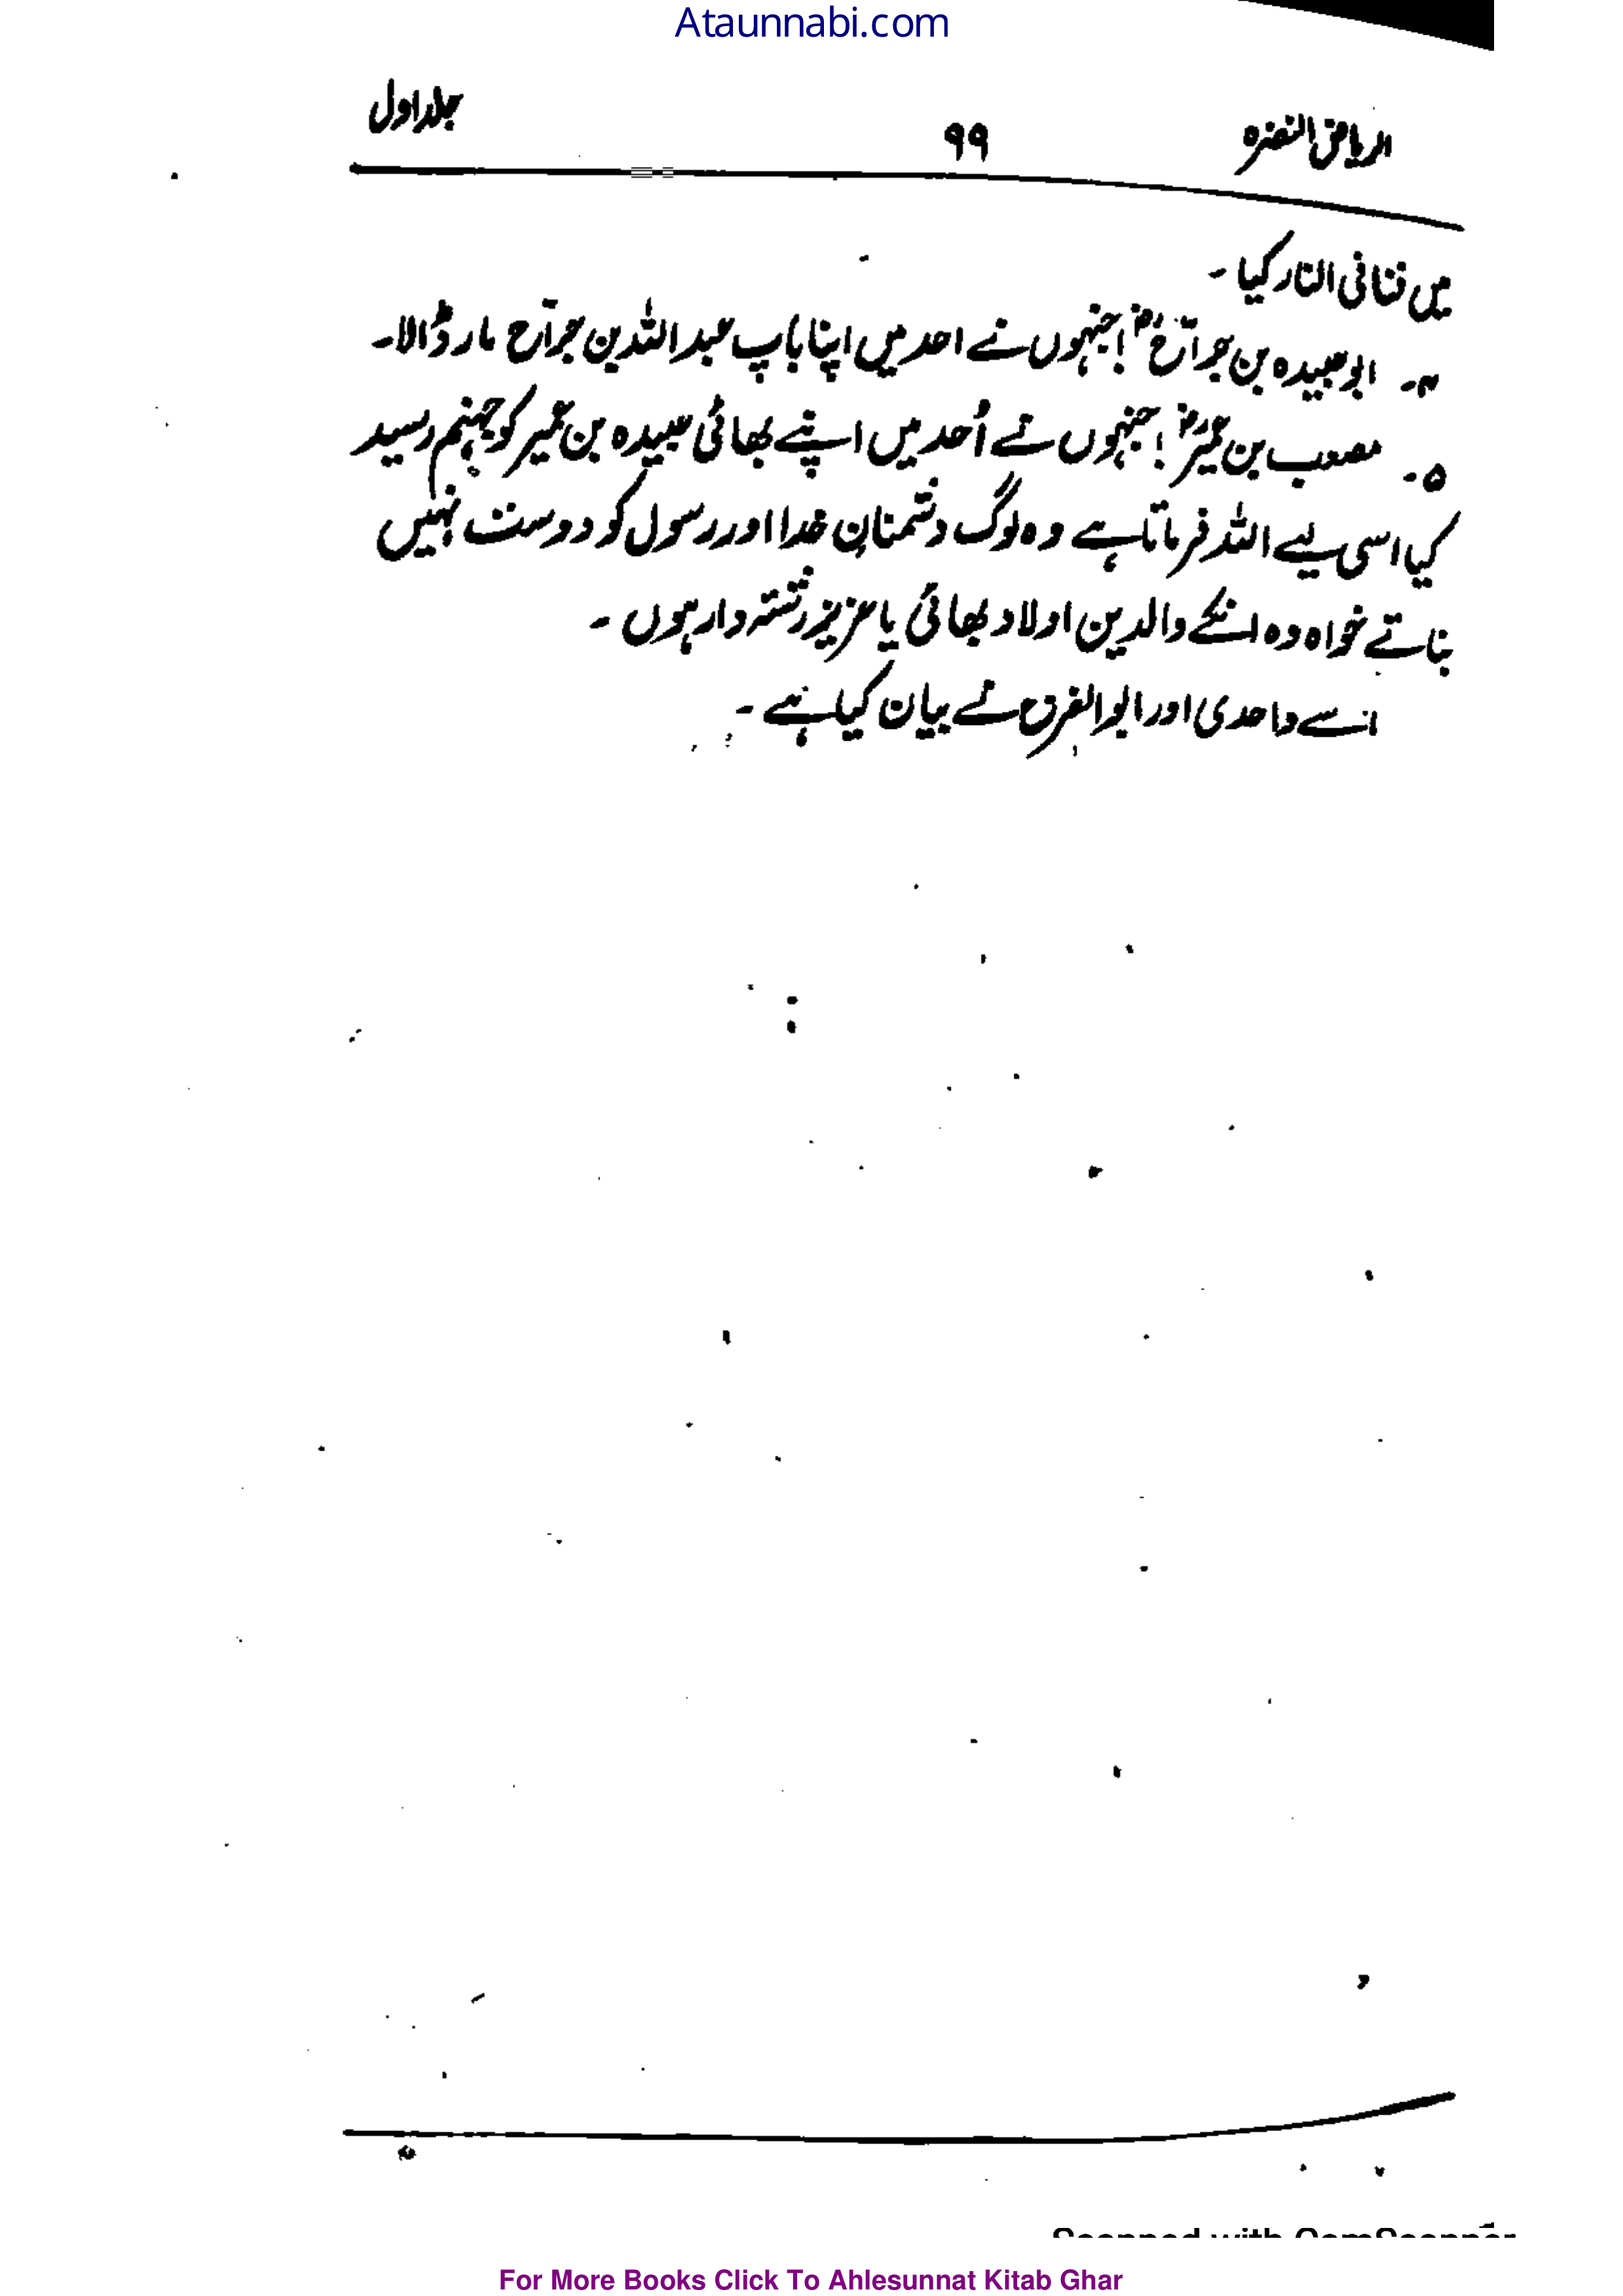 Ataunnabi.com
الریاض النضرہ ۹۹ جلد اول
میں فنافی النار کیا۔
۴۔ ابوعبیدہ بن جراحؓ! جنہوں نے احد میں اپنا باپ عبداللہ بن جراح مار ڈالا۔
۵۔ مصعب بن عمیرؓ! جنہوں نے اُحد میں اپنے بھائی عبیدہ بن عمیر کو جہنم رسید
کیا اسی لیے اللہ فرماتا ہے وہ لوگ دشمنانِ خدا اور رسول کو دوست نہیں
بناتے خواہ وہ انکے والدین اولاد بھائی یا عزیز رشتہ دار ہوں۔
اسے واحدی اور ابوالفرج نے بیان کیا ہے۔
Scanned with CamScanner
For More Books Click To Ahlesunnat Kitab Ghar